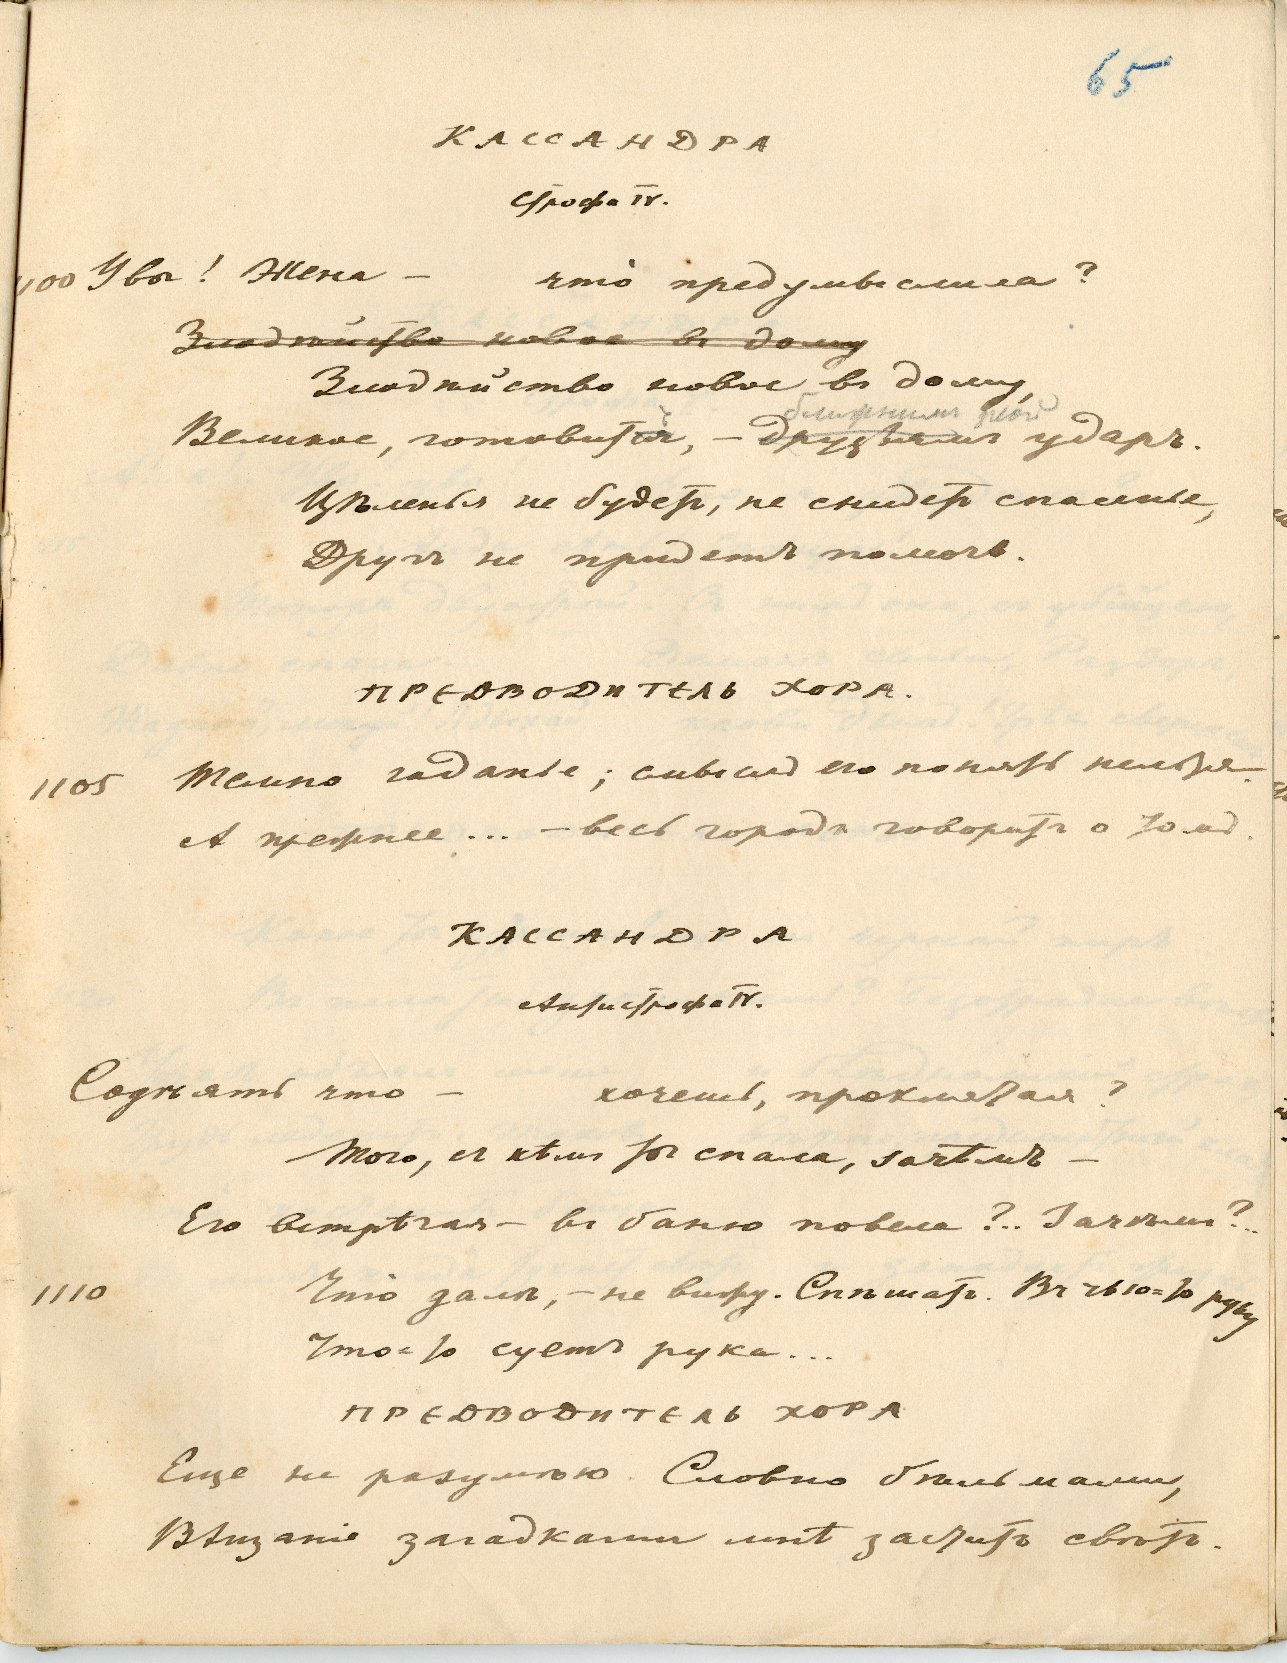 65
КАССАНДРА
Строфа IV.
1100 Увы! Жена — что предумыслила?
Злодѣйство новое въ дому
Злодѣйство новое въ дому,
ближнимъ злой
Великое, готовитъ, — друзьямъ ударъ.
Цѣленья не будетъ, не снидетъ спасенье,
Другъ не придетъ помочь.
ПРЕДВОДИТЕЛЬ ХОРА.
1105 Темно гаданье; смыслъ его понять нельзя.
А прежнее... — весь городъ говоритъ о томъ.
КАССАНДРА
Антистрофа IV.
Содѣять что — хочешь, проклятая?
Того, съ кѣмъ ты спала, зачѣмъ —
Его встрѣчая — въ баню повела?.. Зачѣмъ?..
1110 Что далѣ, — не вижу. Спѣшатъ. Въ чью-то руку
Что-то суетъ рука...
ПРЕДВОДИТЕЛЬ ХОРА
Еще не разумѣю. Словно бѣльмами,
Вѣщаніе загадками мнѣ заститъ свѣтъ.